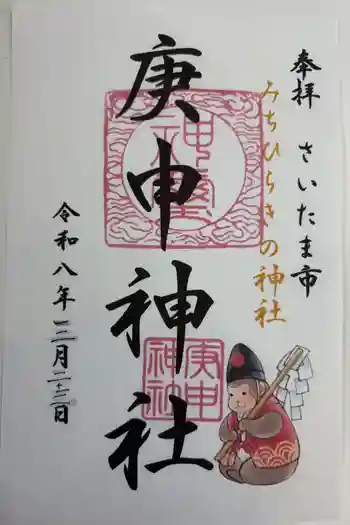 奉拝 さいたま市
みちひらきの神社
庚申神社
庚申
神社
令和八年二月二十三日